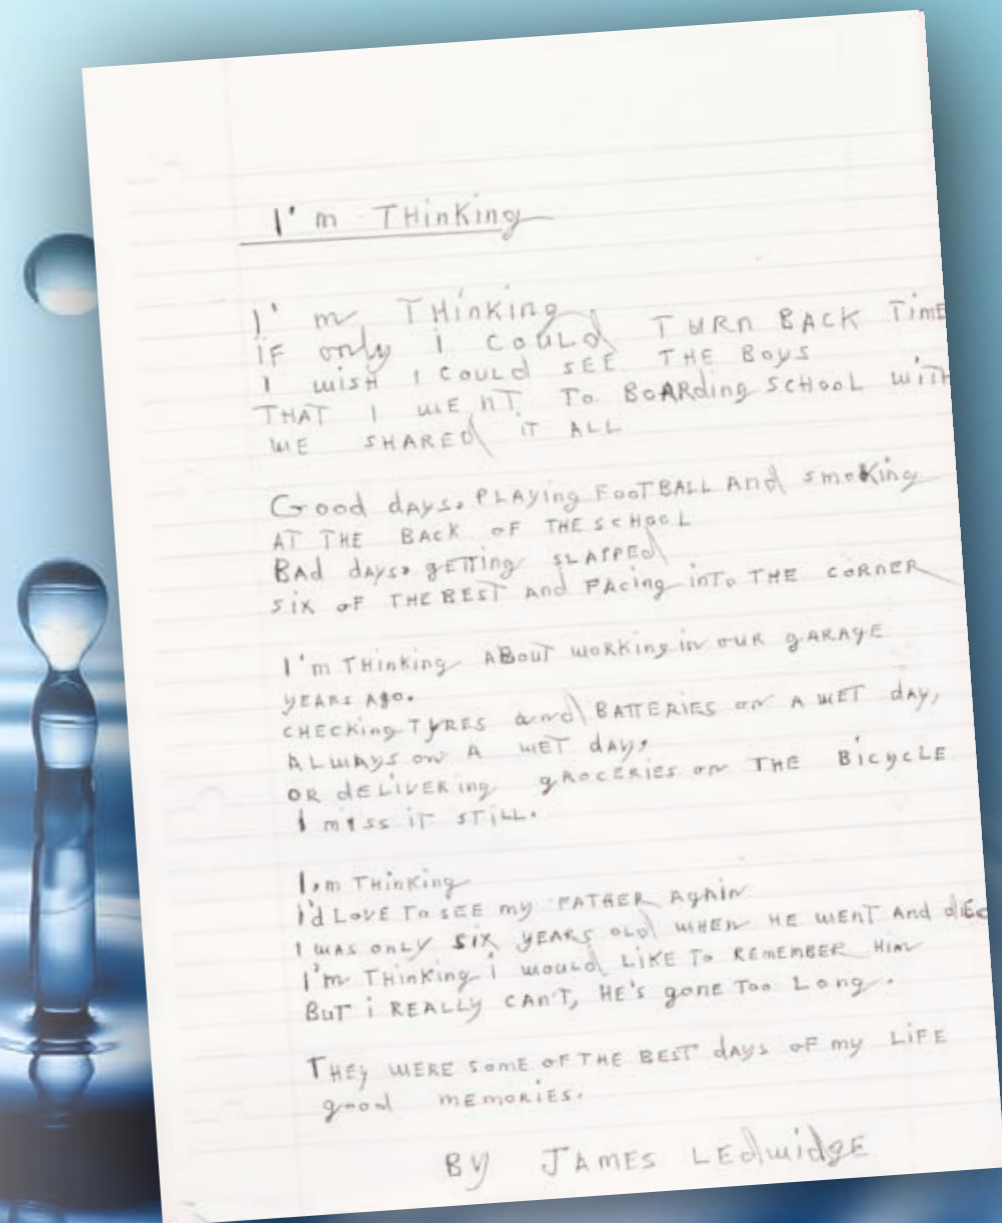 I'm THinKing
I'm THinKing
iF only i COULd TURn BACK TimE
I wisH I COULd SEE THE BoyS
THAT I WEnT To BOARding SCHOOL WiTH
WE SHAREd iT ALL
Good dAYS, PLAYing FooTBALL And smoKing
AT THE BACK OF THE SCHOOL
BAd dAYS, gETTing SLAPPEd
SiX OF THE BEST And FAcing inTo THE CORNER
I'm THinKing ABouT WORKing in OUR gARAGE
YEARS Ago.
CHECKing TYRES And BATTERiES on A WET dAY,
ALWAYS on A WET dAY,
OR dELiVERing gROCERiES on THE BicycLE
I miss iT STiLL.
I,m THinKing
I'd LOVE To SEE my FATHER AgAin
I WAS onLY SiX YEARS OLd WHEn HE WEnT And diEd
I'm THinKing i WOULd LiKE To REMEMBER Him
BuT i REALLy CAn'T, HE'S gonE Too Long.
THEy WERE SomE oF THE BEST dAYS oF my LiFE
good mEMORiES.
By JAmES LEdwidgE